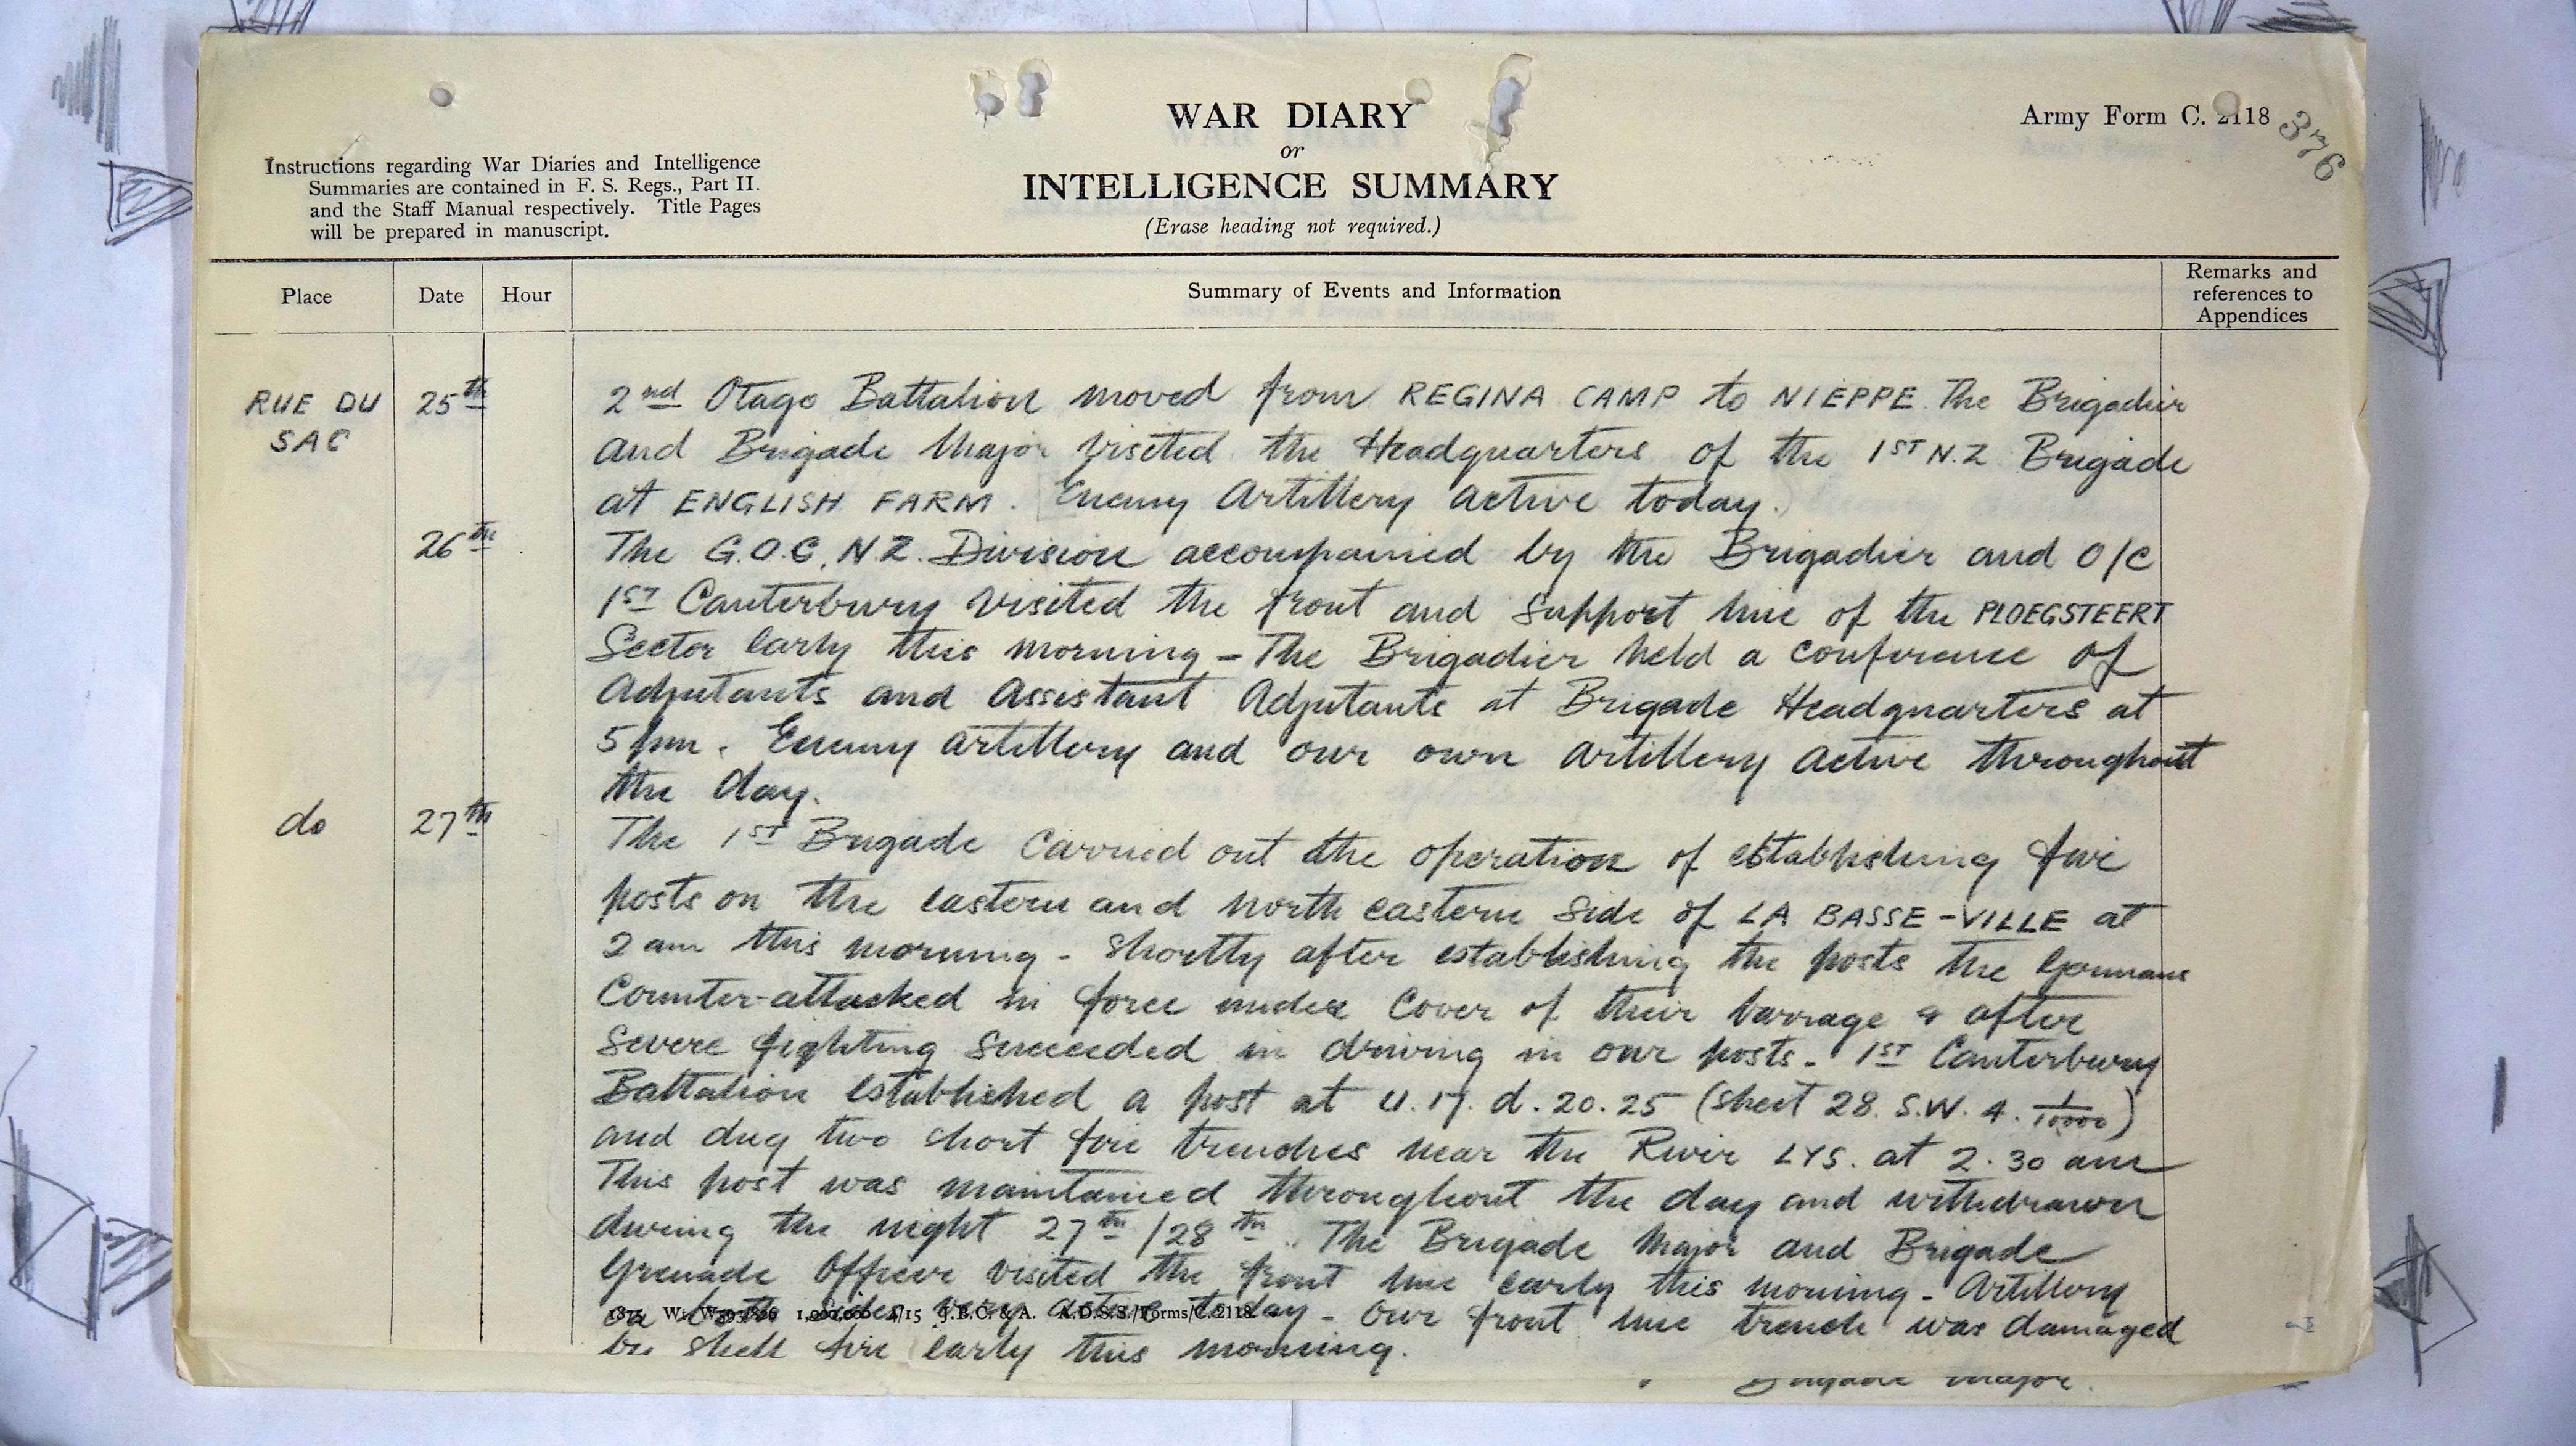 WAR DIARY
or
INTELLIGENCE SUMMARY
(Erase heading not required.)
Army Form C. 2118
376
Instructions regarding War Diaries and Intelligence
Summaries are contained in F. S. Regs., Part II.
and the Staff Manual respectively. Title Pages
will be prepared in manuscript.
Place
Date
Hour
Summary of Events and Information
Remarks and
references to
Appendices
RUE DU
SAC
25th
2nd Otago Battalion moved from REGINA CAMP to NIEPPE. The Brigadier
and Brigade Major visited the Headquarters of the 1ST N.Z Brigade
at ENGLISH FARM. Enemy Artillery active today.
26th
The G.O.C. N.Z. Division accompanied by the Brigadier and O/C
1ST Canterbury visited the front and support line of the PLOEGSTEERT
Sector early this morning - The Brigadier held a conference of
Adjutants and Assistant Adjutants at Brigade Headquarters at
5 pm. Enemy artillery and our own artillery active throughout
the day.
do
27th
The 1ST Brigade carried out the operation of establishing five
posts on the eastern and north eastern side of LA BASSE-VILLE at
2 am this morning - Shortly after establishing the posts the Germans
Counter-attacked in force under cover of their barrage & after
severe fighting succeeded in driving in our posts - 1ST Canterbury
Battalion established a post at U.17.d.20.25 (Sheet 28. S.W. 4. 1/10000)
and dug two short fire trenches near the River LYS. at 2.30 am
This post was maintained throughout the day and withdrawn
during the night 27th/28th. The Brigade Major and Brigade
Grenade Officer visited the front line early this morning - Artillery
on both sides very active today - Our front line trench was damaged
1875 Wt. W593/826 1,000,000 4/15 J.B.C. & A. A.D.S.S./Forms/C.2118.
by shell fire early this morning.
Brigade Major.